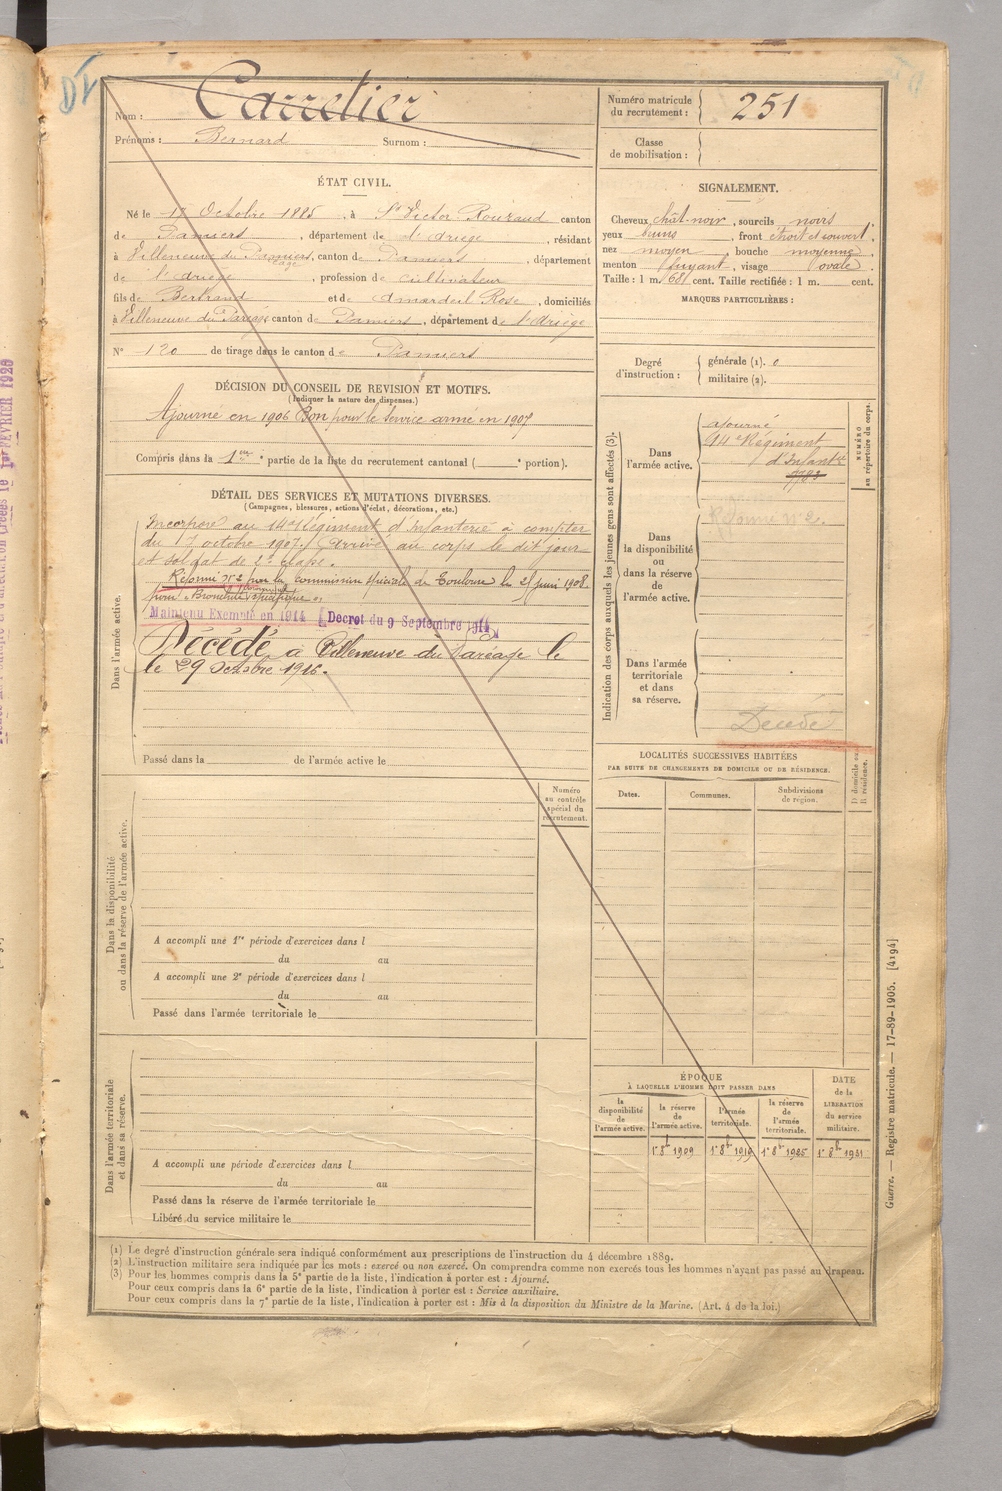 DI
Nom : Carretier
Prénoms : Bernard Surnom :
Numéro matricule
du recrutement : 251
Classe
de mobilisation :
ÉTAT CIVIL.
Né le 17 Octobre 1885, à St Victor Rouzaud canton
de Pamiers, département de l'Ariège, résidant
à Villeneuve du Paréage, canton de Pamiers, département
de l'Ariège, profession de cultivateur
fils de Bertrand et de Amardeil Rose, domiciliés
à Villeneuve du Paréage canton de Pamiers, département de l'Ariège
N° 120 de tirage dans le canton de Pamiers
SIGNALEMENT.
Cheveux chât. noir, sourcils noirs
yeux bruns, front étroit et ouvert,
nez moyen, bouche moyenne
menton fuyant, visage ovale.
Taille : 1 m. 681 cent. Taille rectifiée : 1 m. cent.
MARQUES PARTICULIÈRES :
Degré
d'instruction :
générale (1). 0
militaire (2).
DÉCISION DU CONSEIL DE REVISION ET MOTIFS.
(Indiquer la nature des dispenses.)
Ajourné en 1906 Bon pour le service armé en 1907
Compris dans la 1ère partie de la liste du recrutement cantonal ( e portion).
DÉTAIL DES SERVICES ET MUTATIONS DIVERSES.
(Campagnes, blessures, actions d'éclat, décorations, etc.)
Dans l'armée active.
Incorporé au 14e Régiment d'Infanterie à compter
du 17 octobre 1907. Arrivé au corps le dit jour
et soldat de 2e classe.
Réformé N° 2 par la commission spéciale de Toulouse le 25 juin 1908
pour « Bronchite spécifique »
Maintenu Exempté en 1914 [Decret du 9 Septembre 1914]
Décédé à Villeneuve du Paréage le
le 29 octobre 1916.
Passé dans la de l'armée active le
Indication des corps auxquels les jeunes gens sont affectés (3).
NUMÉRO
au répertoire du corps.
Dans
l'armée active.
ajourné
14e Régiment
d'Infantie
Dans
la disponibilité
ou
dans la réserve
de
l'armée active.
Réformé n° 2.
Dans l'armée
territoriale
et dans
sa réserve.
Décédé
LOCALITÉS SUCCESSIVES HABITÉES
PAR SUITE DE CHANGEMENTS DE DOMICILE OU DE RÉSIDENCE.
Dates.
Communes.
Subdivisions
de région.
D. domicile ou
R. résidence.
Numéro
au contrôle
spécial du
recrutement.
Dans la disponibilité
ou dans la réserve de l'armée active.
A accompli une 1re période d'exercices dans l
du au
A accompli une 2e période d'exercices dans l
du au
Passé dans l'armée territoriale le
Dans l'armée territoriale
et dans sa réserve.
A accompli une période d'exercices dans l
du au
Passé dans la réserve de l'armée territoriale le
Libéré du service militaire le
ÉPOQUE
À LAQUELLE L'HOMME DOIT PASSER DANS
la
disponibilité
de
l'armée active.
la réserve
de
l'armée active.
l'armée
territoriale.
la réserve
de
l'armée
territoriale.
DATE
de la
LIBÉRATION
du service
militaire.
1er 8bre 1909
1er 8bre 1919
1er 8bre 1925
1er 8bre 1931
(1) Le degré d'instruction générale sera indiqué conformément aux prescriptions de l'instruction du 4 décembre 1889.
(2) L'instruction militaire sera indiquée par les mots : exercé ou non exercé. On comprendra comme non exercés tous les hommes n'ayant pas passé au drapeau.
(3) Pour les hommes compris dans la 5e partie de la liste, l'indication à porter est : Ajourné.
Pour ceux compris dans la 6e partie de la liste, l'indication à porter est : Service auxiliaire.
Pour ceux compris dans la 7e partie de la liste, l'indication à porter est : Mis à la disposition du Ministre de la Marine. (Art. 4 de la loi.)
Guerre. — Registre matricule. — 17-89-1905. [4194]
1er FEVRIER 1920